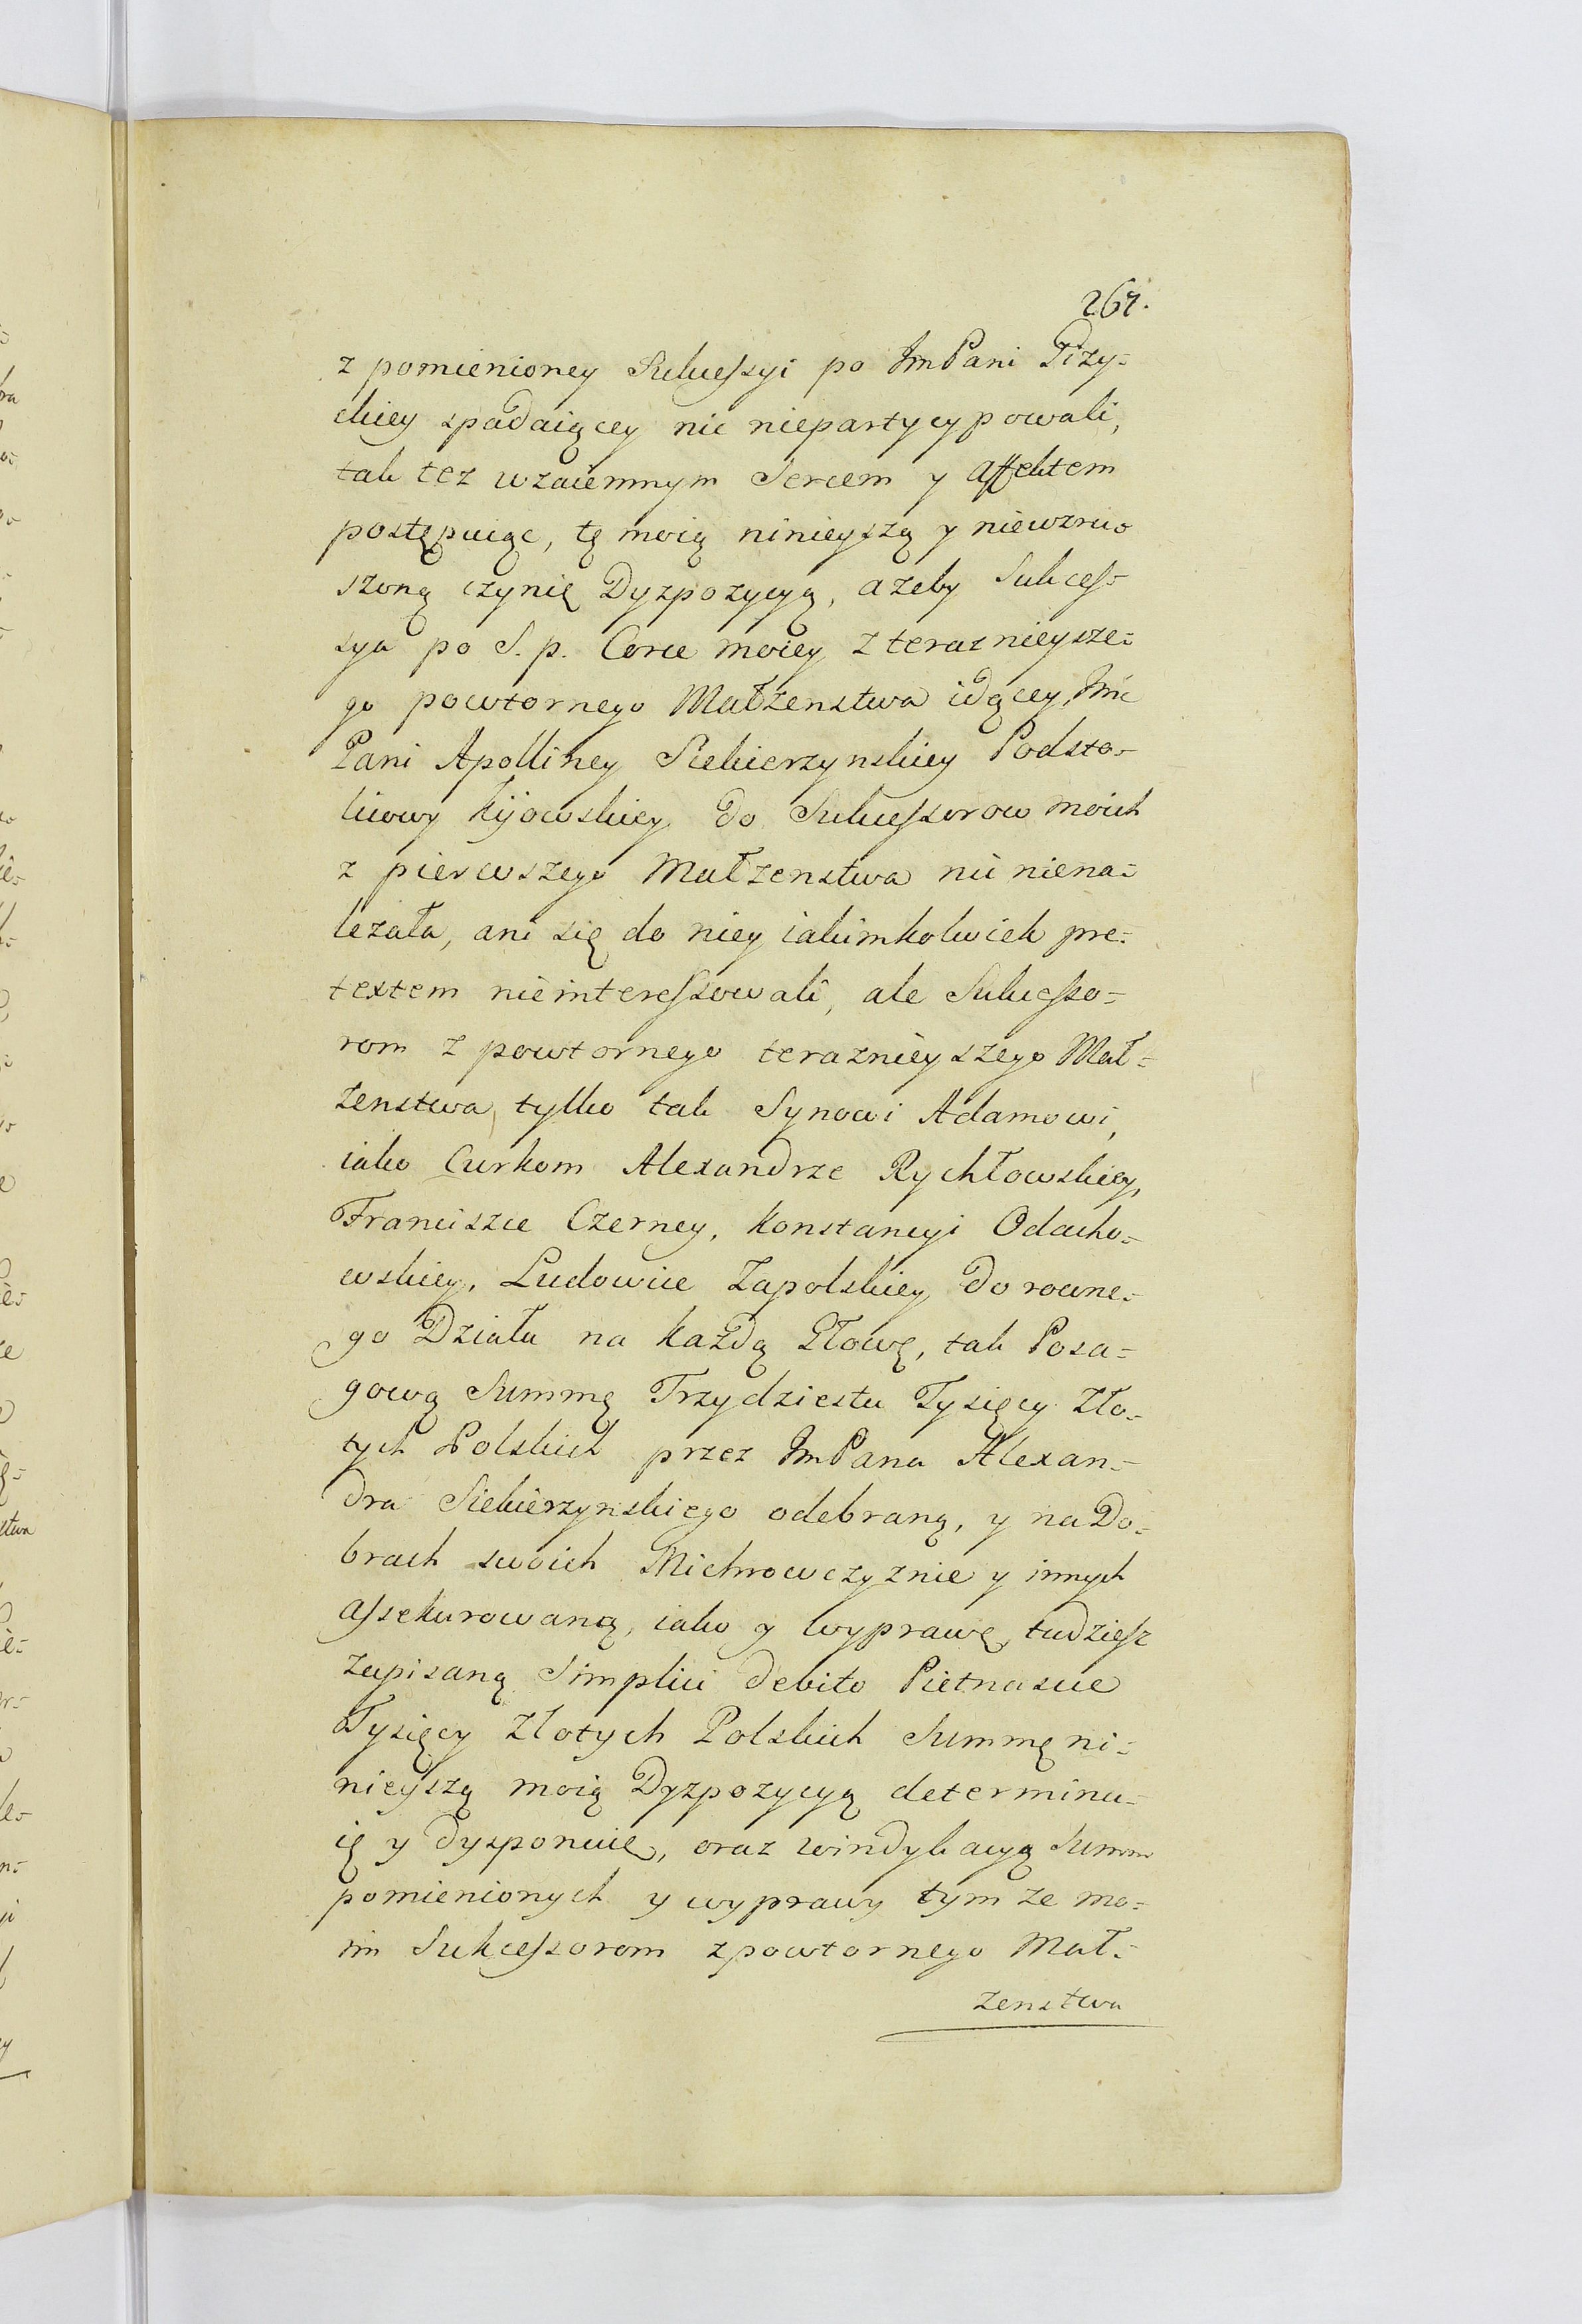 267.
z pomienioney Sukcessyi po ImPani Piży-
ckiey spadaiącey nic niepartycypowali,
tak tez wzaiemnym Sercem y affektem
postępuiąc, tę moią ninieyszą y niewzru-
szoną czynię Dyzpozycyą, azeby Sukces-
sya po S. p. Corce moiey z teraznieysze-
go powtornego Małzenstwa idącey, Imc
Pani Apolliney Siekierzynskiey Podsto-
liowy kijowskiey do Sukcessorow moich
z pierwszego Małzenstwa nic niena-
lezała, ani się do niey iakimkolwiek pre-
textem nieinteressowali, ale Sukcesso-
rom z powtornego teraznieyszego Mał-
zenstwa, tylko tak Synowi Adamowi,
iako Curkom Alexandrze Rychłowskiey,
Franciszce Czerney, Konstancyi Odacho-
wskiey, Ludowice Zapolskiey do rowne-
go Działu na każdą Głowę, tak Posa-
gową Summę Trzydziestu Tysięcy Zło-
tych Polskich przez ImPana Alexan-
dra Siekierzynskiego odebraną, y na Do-
brach swoich Michnowczyznie y innych
assekurowaną, iako y wyprawę, tudziesz
zapisaną Simplici debito Pietnascie
Tysięcy Złotych Polskich Summę ni-
nieyszą moią Dyzpozycyą determinu-
ię y dysponuię, oraz windykacyą Summ
pomienionych y wyprawy tym ze mo-
im Sukcessorom z powtornego Mał-
zenstwa